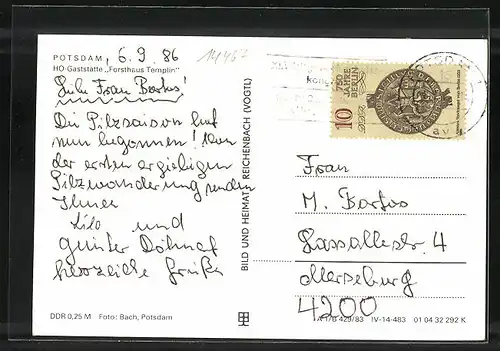 POTSDAM, 6.9.86
14463
HO-Gaststätte „Forsthaus Templin"
Frau Bartos!
Die Pilzsaison hat
nun begonnen! Von
der ersten ergiebigen
Pilzwanderung senden
Ihnen
Lilo und
Günter
herzliche Grüße
DDR 0,25 M Foto: Bach, Potsdam
BILD UND HEIMAT REICHENBACH (VOGTL)
10
750
JAHRE
BERLIN
DDR
Frau
M. Bartos
Lassallestr. 4
Merseburg
4200
A 1/B 429/83 IV-14-483 01 04 32 292 K